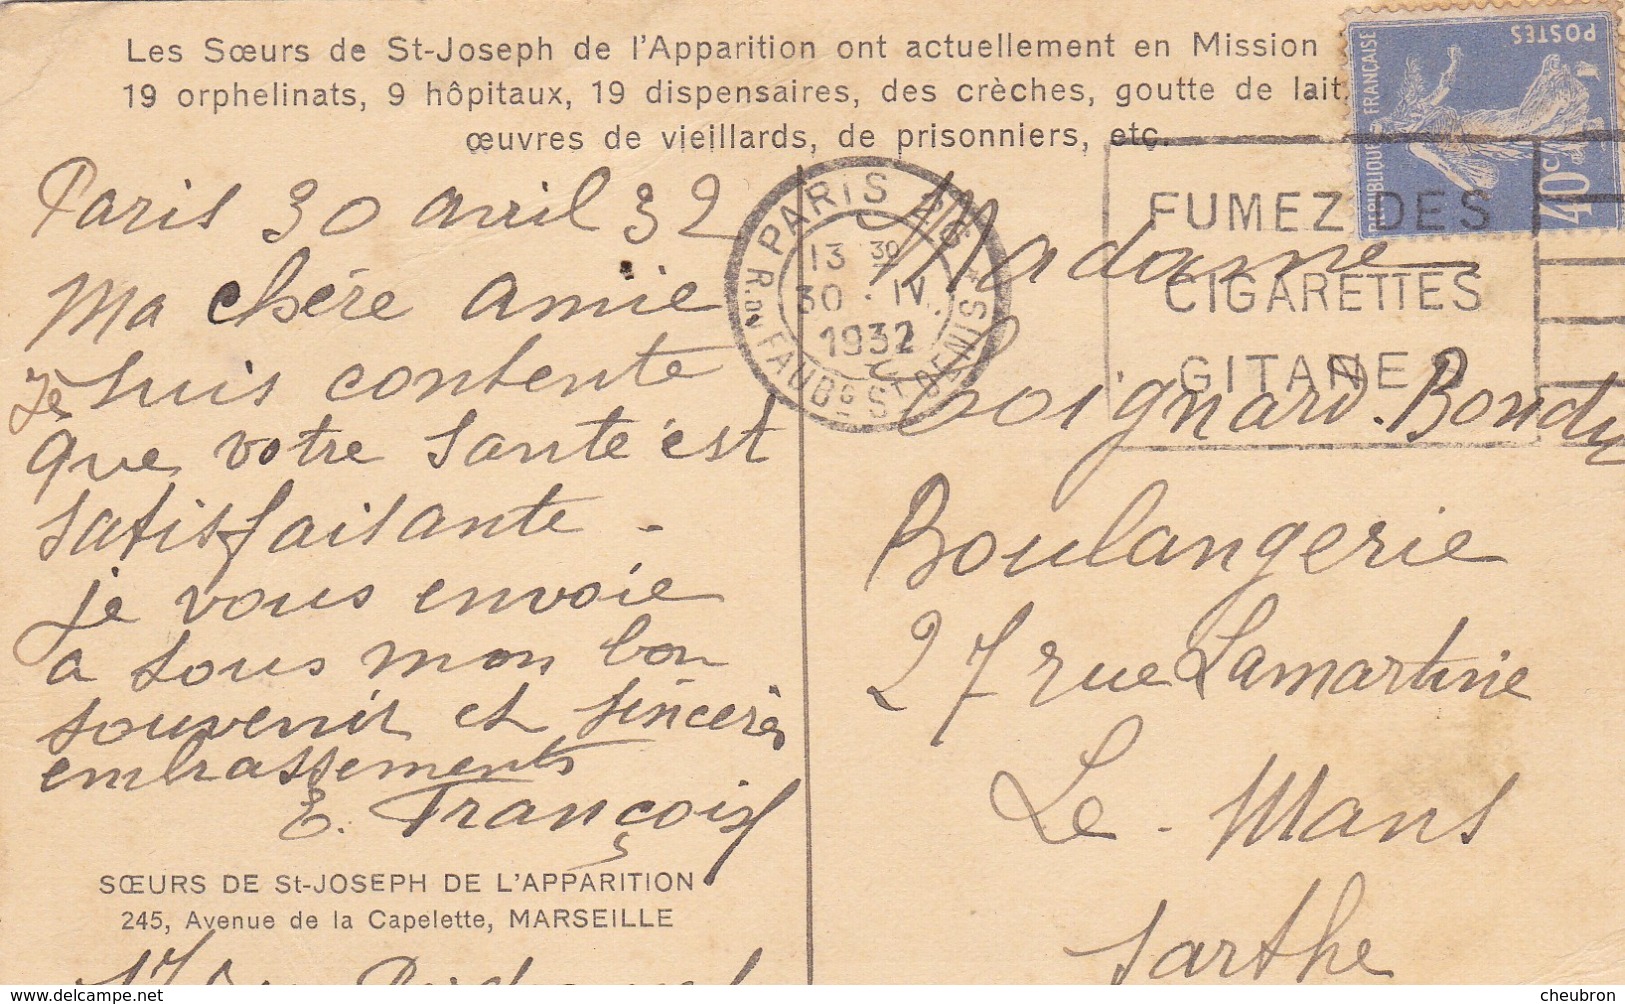 Les Sœurs de St-Joseph de l'Apparition ont actuellement en Mission
19 orphelinats, 9 hôpitaux, 19 dispensaires, des crèches, goutte de lait,
œuvres de vieillards, de prisonniers, etc.
Paris 30 avril 32
Ma chère amie
Je suis contente
que votre santé est
satisfaisante -
je vous envoie
a tous mon bon
souvenir et sincères
embrassements
E. François
SŒURS DE St-JOSEPH DE L'APPARITION
245, Avenue de la Capelette, MARSEILLE
PARIS
13 30
30 · IV.
1932
R. DU FAUBG ST DENIS
REPUBLIQUE FRANÇAISE
POSTES
40c
FUMEZ DES
CIGARETTES
GITANES
Madame
Loignard-Bondu
Boulangerie
27 rue Lamartine
Le Mans
Sarthe
https://www.delcampe.net
cheubron